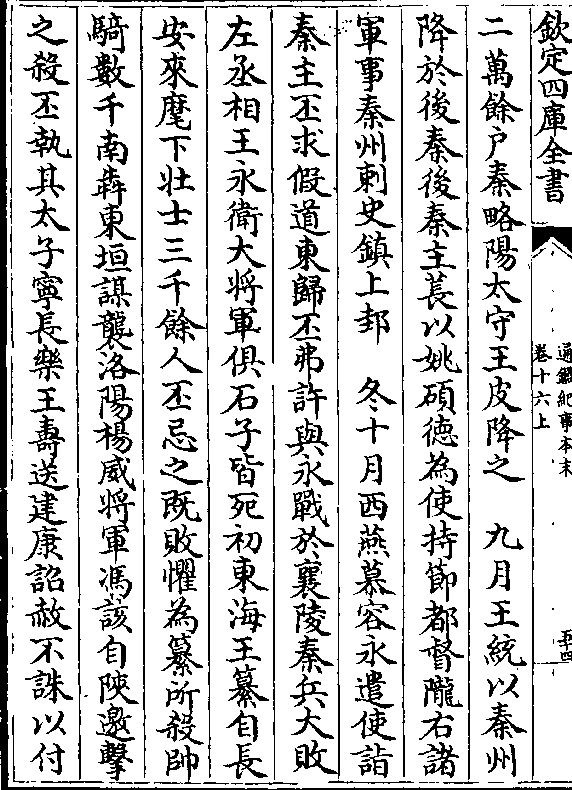 欽定四庫全書
通鑑紀事本末
卷十六上
五十四
二萬餘户秦略陽太守王皮降之　九月王統以秦州
降於後秦後秦主萇以姚碩徳為使持節都督隴右諸
軍事秦州刺史鎮上邽　冬十月西燕慕容永遣使詣
秦主丕求假道東歸丕弗許與永戰於襄陵秦兵大敗
左丞相王永衛大将軍俱石子皆死初東海王纂自長
安來麾下壮士三千餘人丕忌之既敗懼為纂所殺帥
騎數千南犇東垣謀襲洛陽楊威将軍馮該自陝邀擊
之殺丕執其太子寧長樂王壽送建康詔赦不誅以付